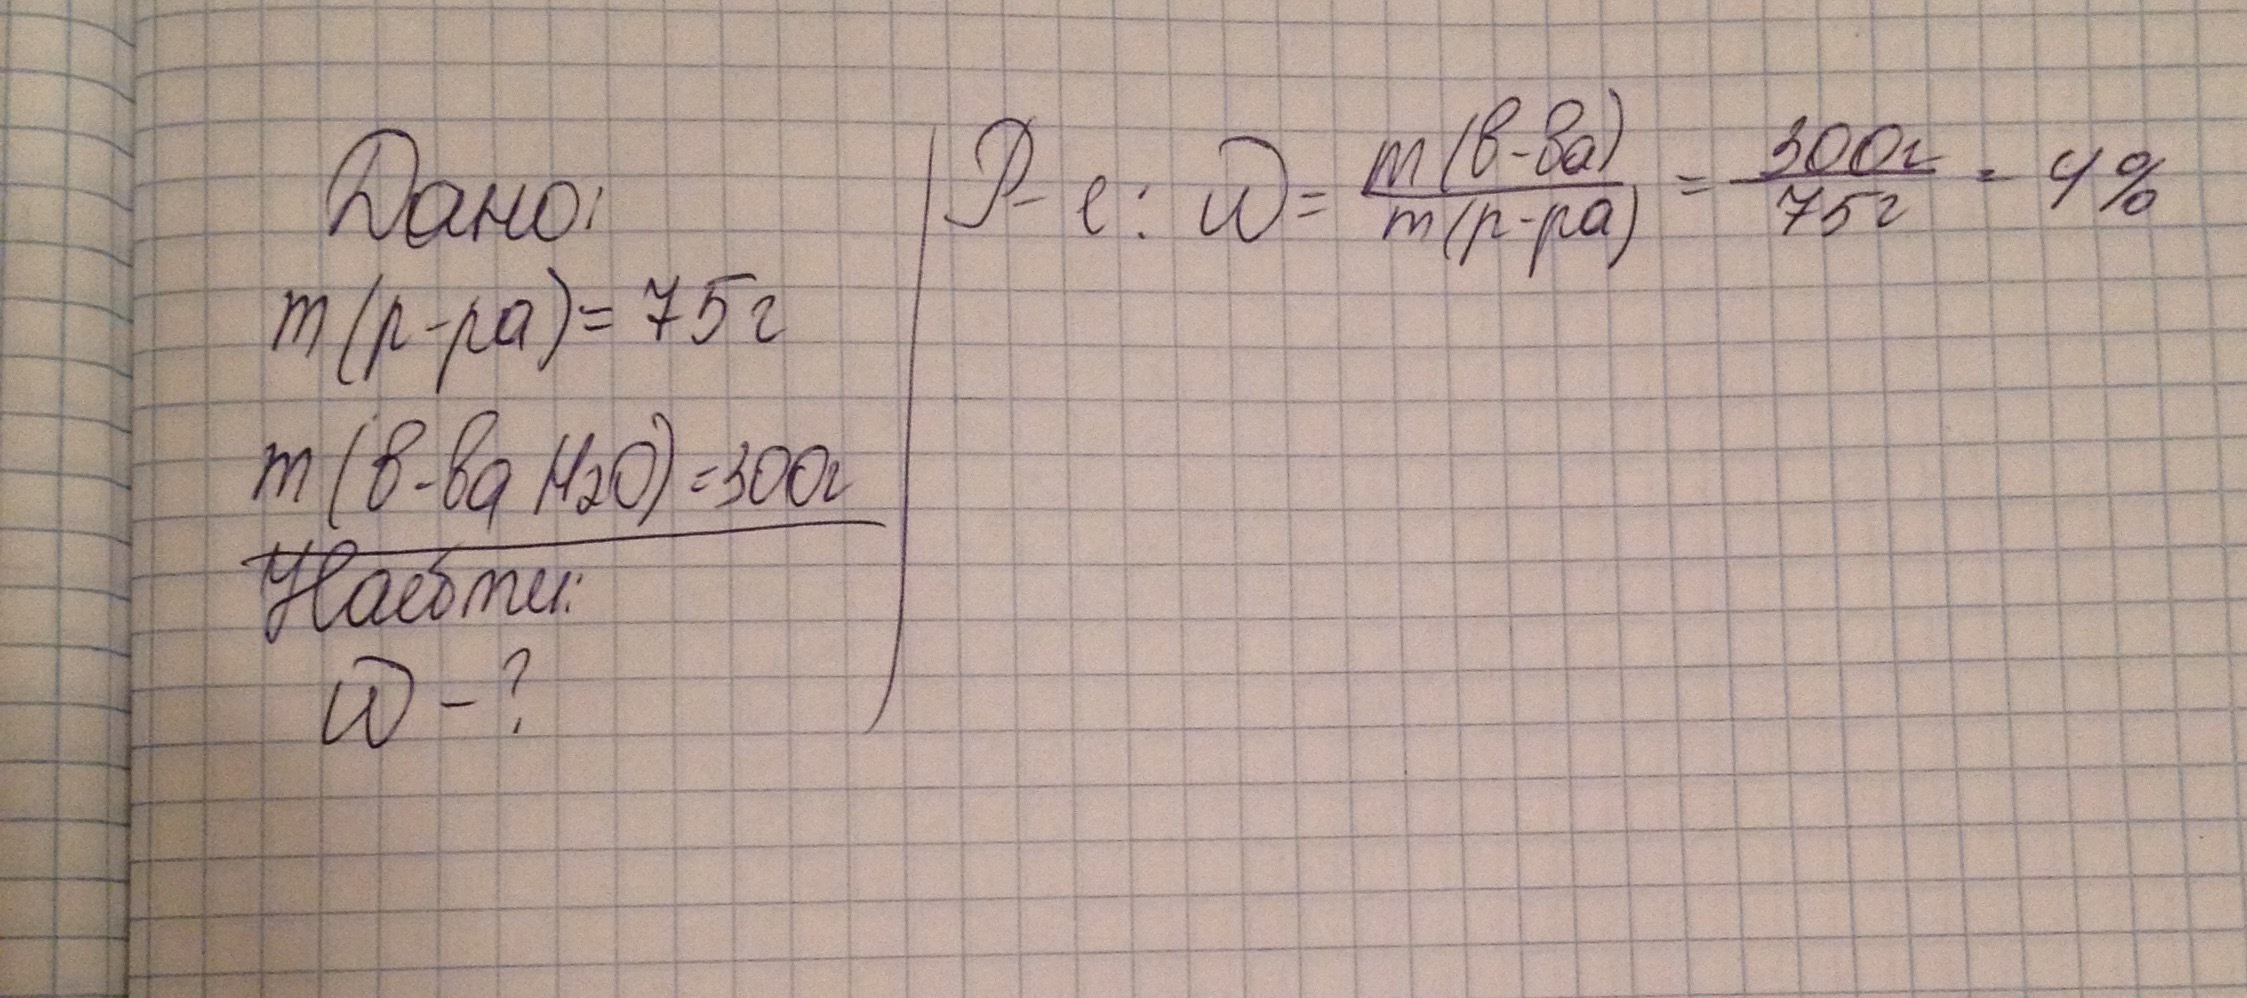 Дано:
m(р-ра)= 75г
m(в-ва H2O)=300г
Найти:
W-?
Р-е: W= m(в-ва) / m(р-ра) = 300г / 75г = 4%